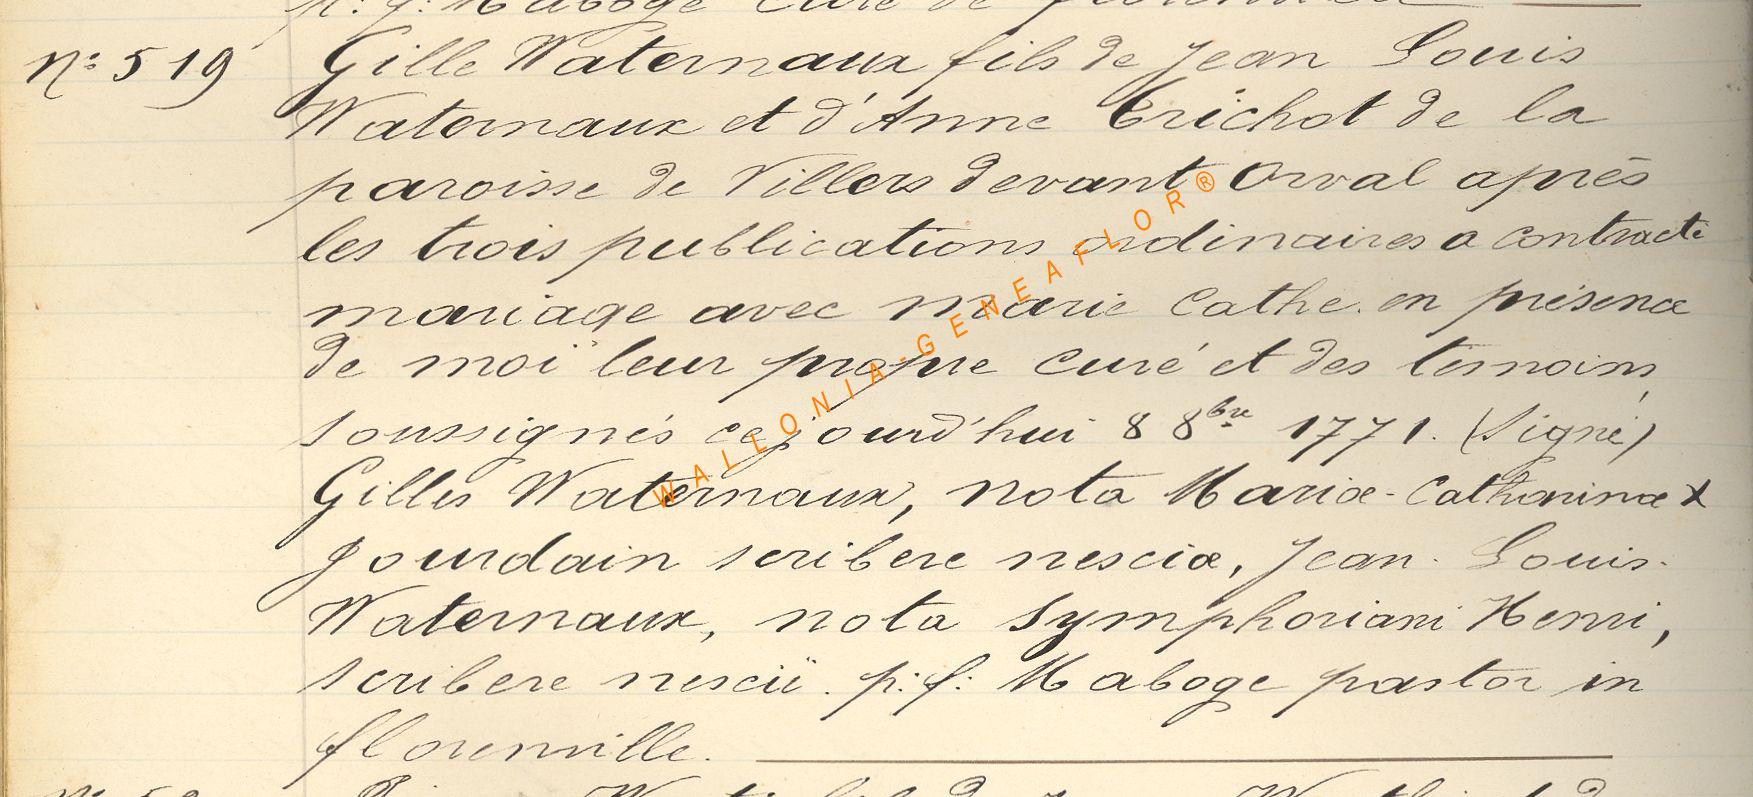 p: f: Maboge curé de florenville
N: 519
Gille Waternaux fils de Jean Louis
Waternaux et d'Anne Trichot de la
paroisse de Villers devant Orval après
les trois publications ordinaires a contracté
mariage avec Marie Cathe. en présence
de moï leur propre curé et des témoins
soussignés cejourd'hui 8 8bre 1771. (Signé)
Gilles Waternaux, nota Mariæ-Catharinæ X
Jourdain scribere nesciæ, Jean. Louis.
Waternaux, nota Symphoriani Henri,
scribere nescii. p: f: Maboge pastor in
florenville.
WALLONIA-GENEAFLOR®